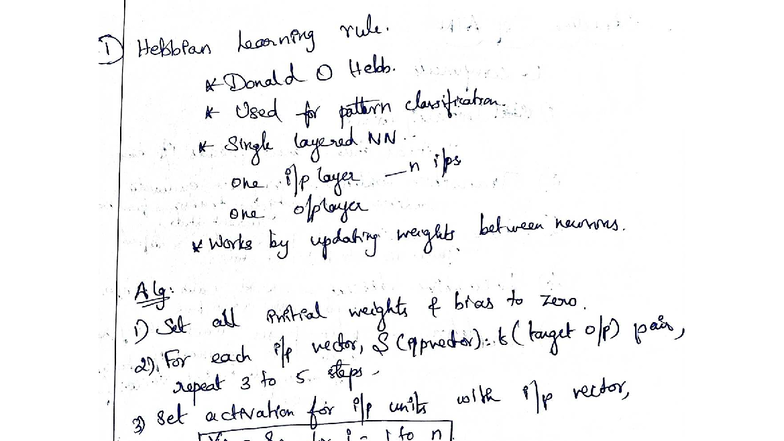 1) Hebbian Learning rule.
* Donald O Hebb.
* Used for pattern classification.
* Single layered NN.
one i/p layer — n i/ps
one o/p layer
* Works by updating weights between neurons.
Alg:
1) Set all initial weights & bias to zero.
2) For each i/p vector, S (i/p vector) : t (target o/p) pair,
repeat 3 to 5 steps.
3) Set activation for i/p units with i/p vector,
i = 1 to n